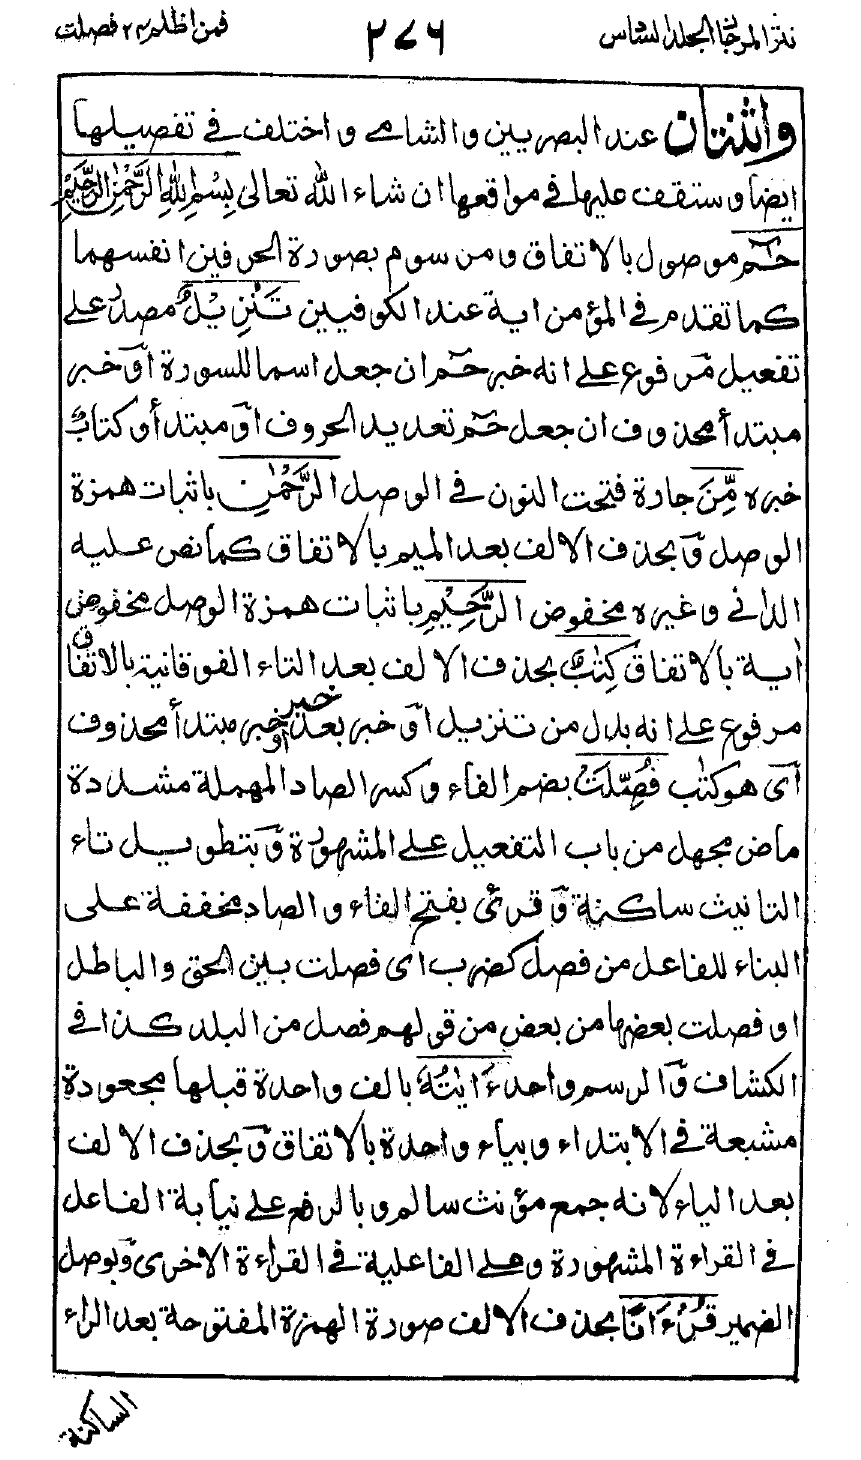 نثر المرجان الجلد السادس
٢٧٦
فمن اظلم ٢٤ فصلت
واثنتان عند البصريين والشامي واختلف في تفصيلها
ايضا وستقف عليها في مواقعها ان شاء الله تعالى بِسْمِ اللهِ الرَّحْمٰنِ الرَّحِيْمِ
حٰمٓ موصول بالاتفاق ومرسوم بصورة الحرفين انفسهما
كما تقدم في المؤمن اية عند الكوفيين تَنْزِيْلٌ مصدر على
تفعيل مرفوع على انه خبر حٰمٓ ان جعل اسما للسورة او خبر
مبتدأ محذوف ان جعل حٰمٓ تعديد الحروف او مبتدأ وكتابٌ
خبره مِّنَ جارة فتحت النون في الوصل الرَّحْمٰنِ باثبات همزة
الوصل وبحذف الالف بعد الميم بالاتفاق كما نص عليه
الداني وغيره مخفوض الرَّحِيْمِ باثبات همزة الوصل مخفوض
اية بالاتفاق كِتٰبٌ بحذف الالف بعد التاء الفوقانية بالاتفاق
مرفوع على انه بدل من تنزيل او خبر بعد خبر او خبر مبتدأ محذوف
اى هو كتٰب فُصِّلَتْ بضم الفاء وكسر الصاد المهملة مشددة
ماض مجهل من باب التفعيل على المشهورة وبتطويل تاء
التانيث ساكنة وقرئ بفتح الفاء والصاد مخففة على
البناء للفاعل من فصل كضرب اى فصلت بين الحق والباطل
او فصلت بعضها من بعض من قولهم فصل من البلد كذا في
الكشاف والرسم واحد ءَايٰتُهٗ بالف واحدة قبلها مجعودة
مشبعة في الابتداء وبياء واحدة بالاتفاق وبحذف الالف
بعد الياء لانه جمع مؤنث سالم وبالرفع على نيابة الفاعل
في القراءة المشهورة وعلى الفاعلية في القراءة الاخرى وبوصل
الضمير قُرْءَانًا بحذف الالف صورة الهمزة المفتوحة بعد الراء
الساكنة